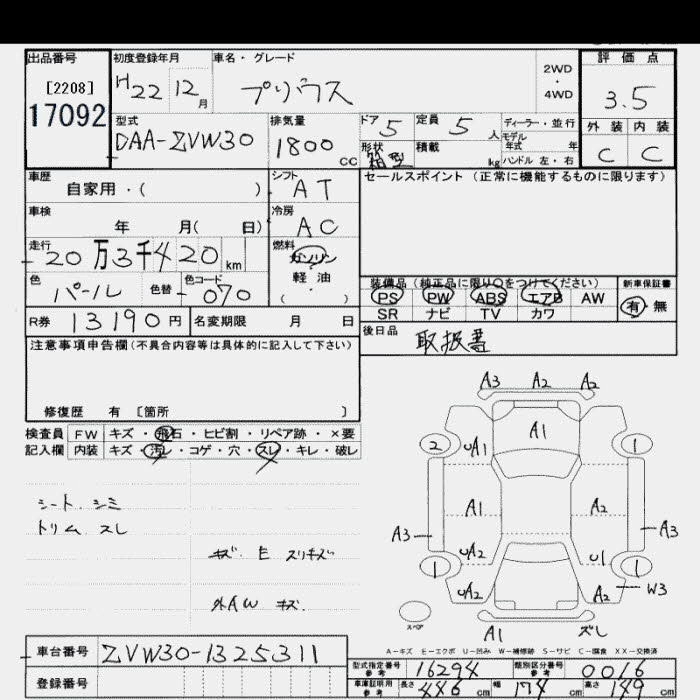 出品番号 初度登録年月 車名・グレード 評価点
[2208] H22 12月 プリウス 2WD・4WD 3.5
17092
型式 排気量 ドア 定員 ディーラー・並行 外装 内装
DAA-ZVW30 1800cc 5 5人 モデル年式 年 C C
形状 箱型 積載 kg ハンドル 左・右
車歴 シフト セールスポイント (正常に機能するものに限ります)
自家用・( ) AT
車検 冷房
年 月( 日) AC
走行 燃料
20万3千420km ガソリン
軽油
( )
色 パール 色替 色コード 070
装備品(純正品に限り○をつけてください) 新車保証書
PS PW ABS エアB AW 有・無
SR ナビ TV カワ
R券 13190円 名変期限 月 日
後日品 取扱書
注意事項申告欄(不具合内容等は具体的に記入して下さい)
修復歴 有 〔箇所 〕
検査員 FW キズ・飛石・ヒビ割・リペア跡・×要
記入欄 内装 キズ・汚レ・コゲ・穴・スレ・キレ・破レ
A3 A2 A2
A1
2 uA1 1
シート、シミ
トリム スレ
A1 A2
A3 A3
キズ E スリキズ
uA2 u1
1 1
uA2 A2 W3
外AW キズ
スペア A1 ズレ
A-キズ E-エクボ U-凹み W-補修跡 S-サビ C-腐食 XX-交換済
車台番号 ZVW30-1325311
型式指定番号 参考 16294 類別区分番号 参考 0016
登録番号
車庫証明用 参考 長さ 446cm 幅 174cm 高さ 149cm